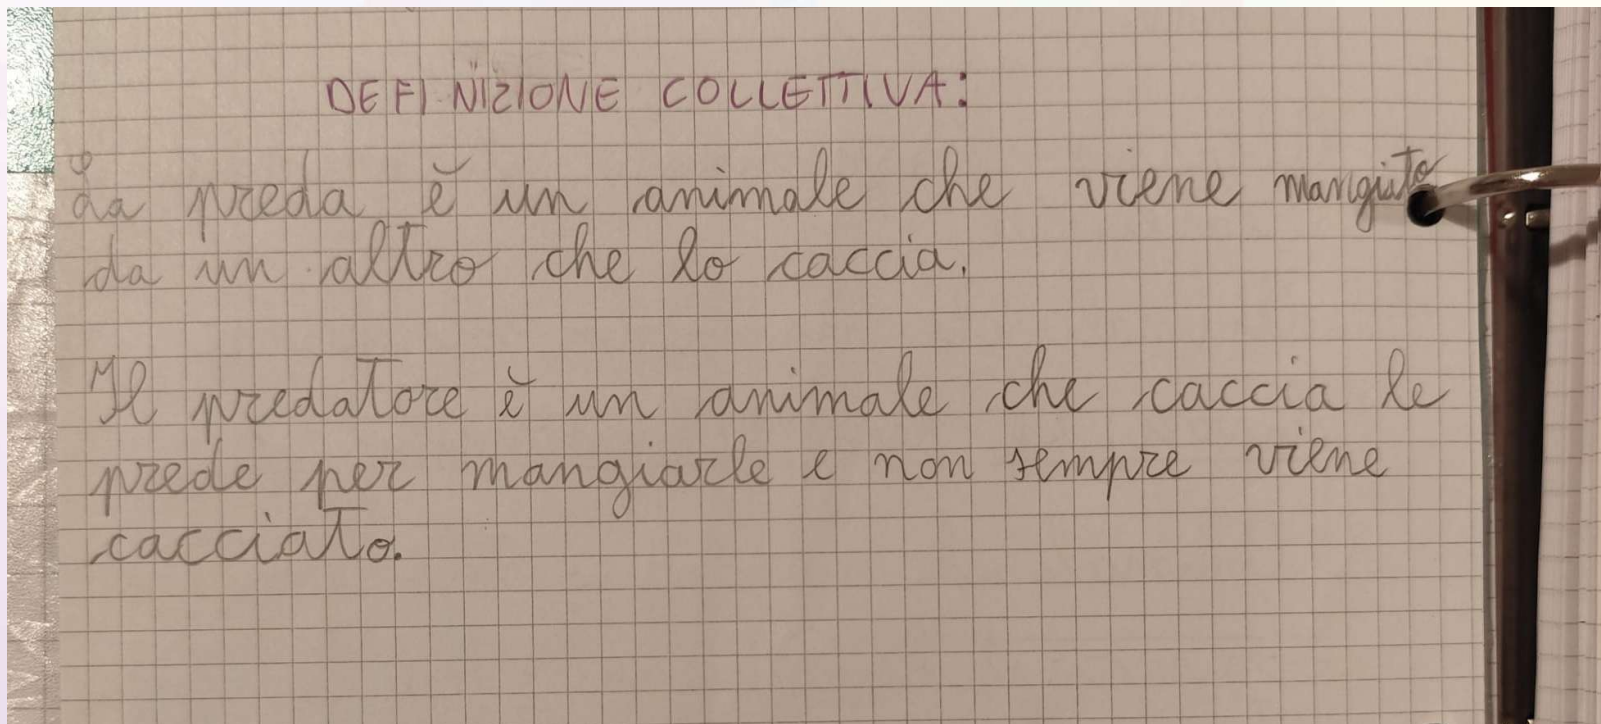 DEFINIZIONE COLLETTIVA:
La preda è un animale che viene mangiato
da un altro che lo caccia.
Il predatore è un animale che caccia le
prede per mangiarle e non sempre viene
cacciato.